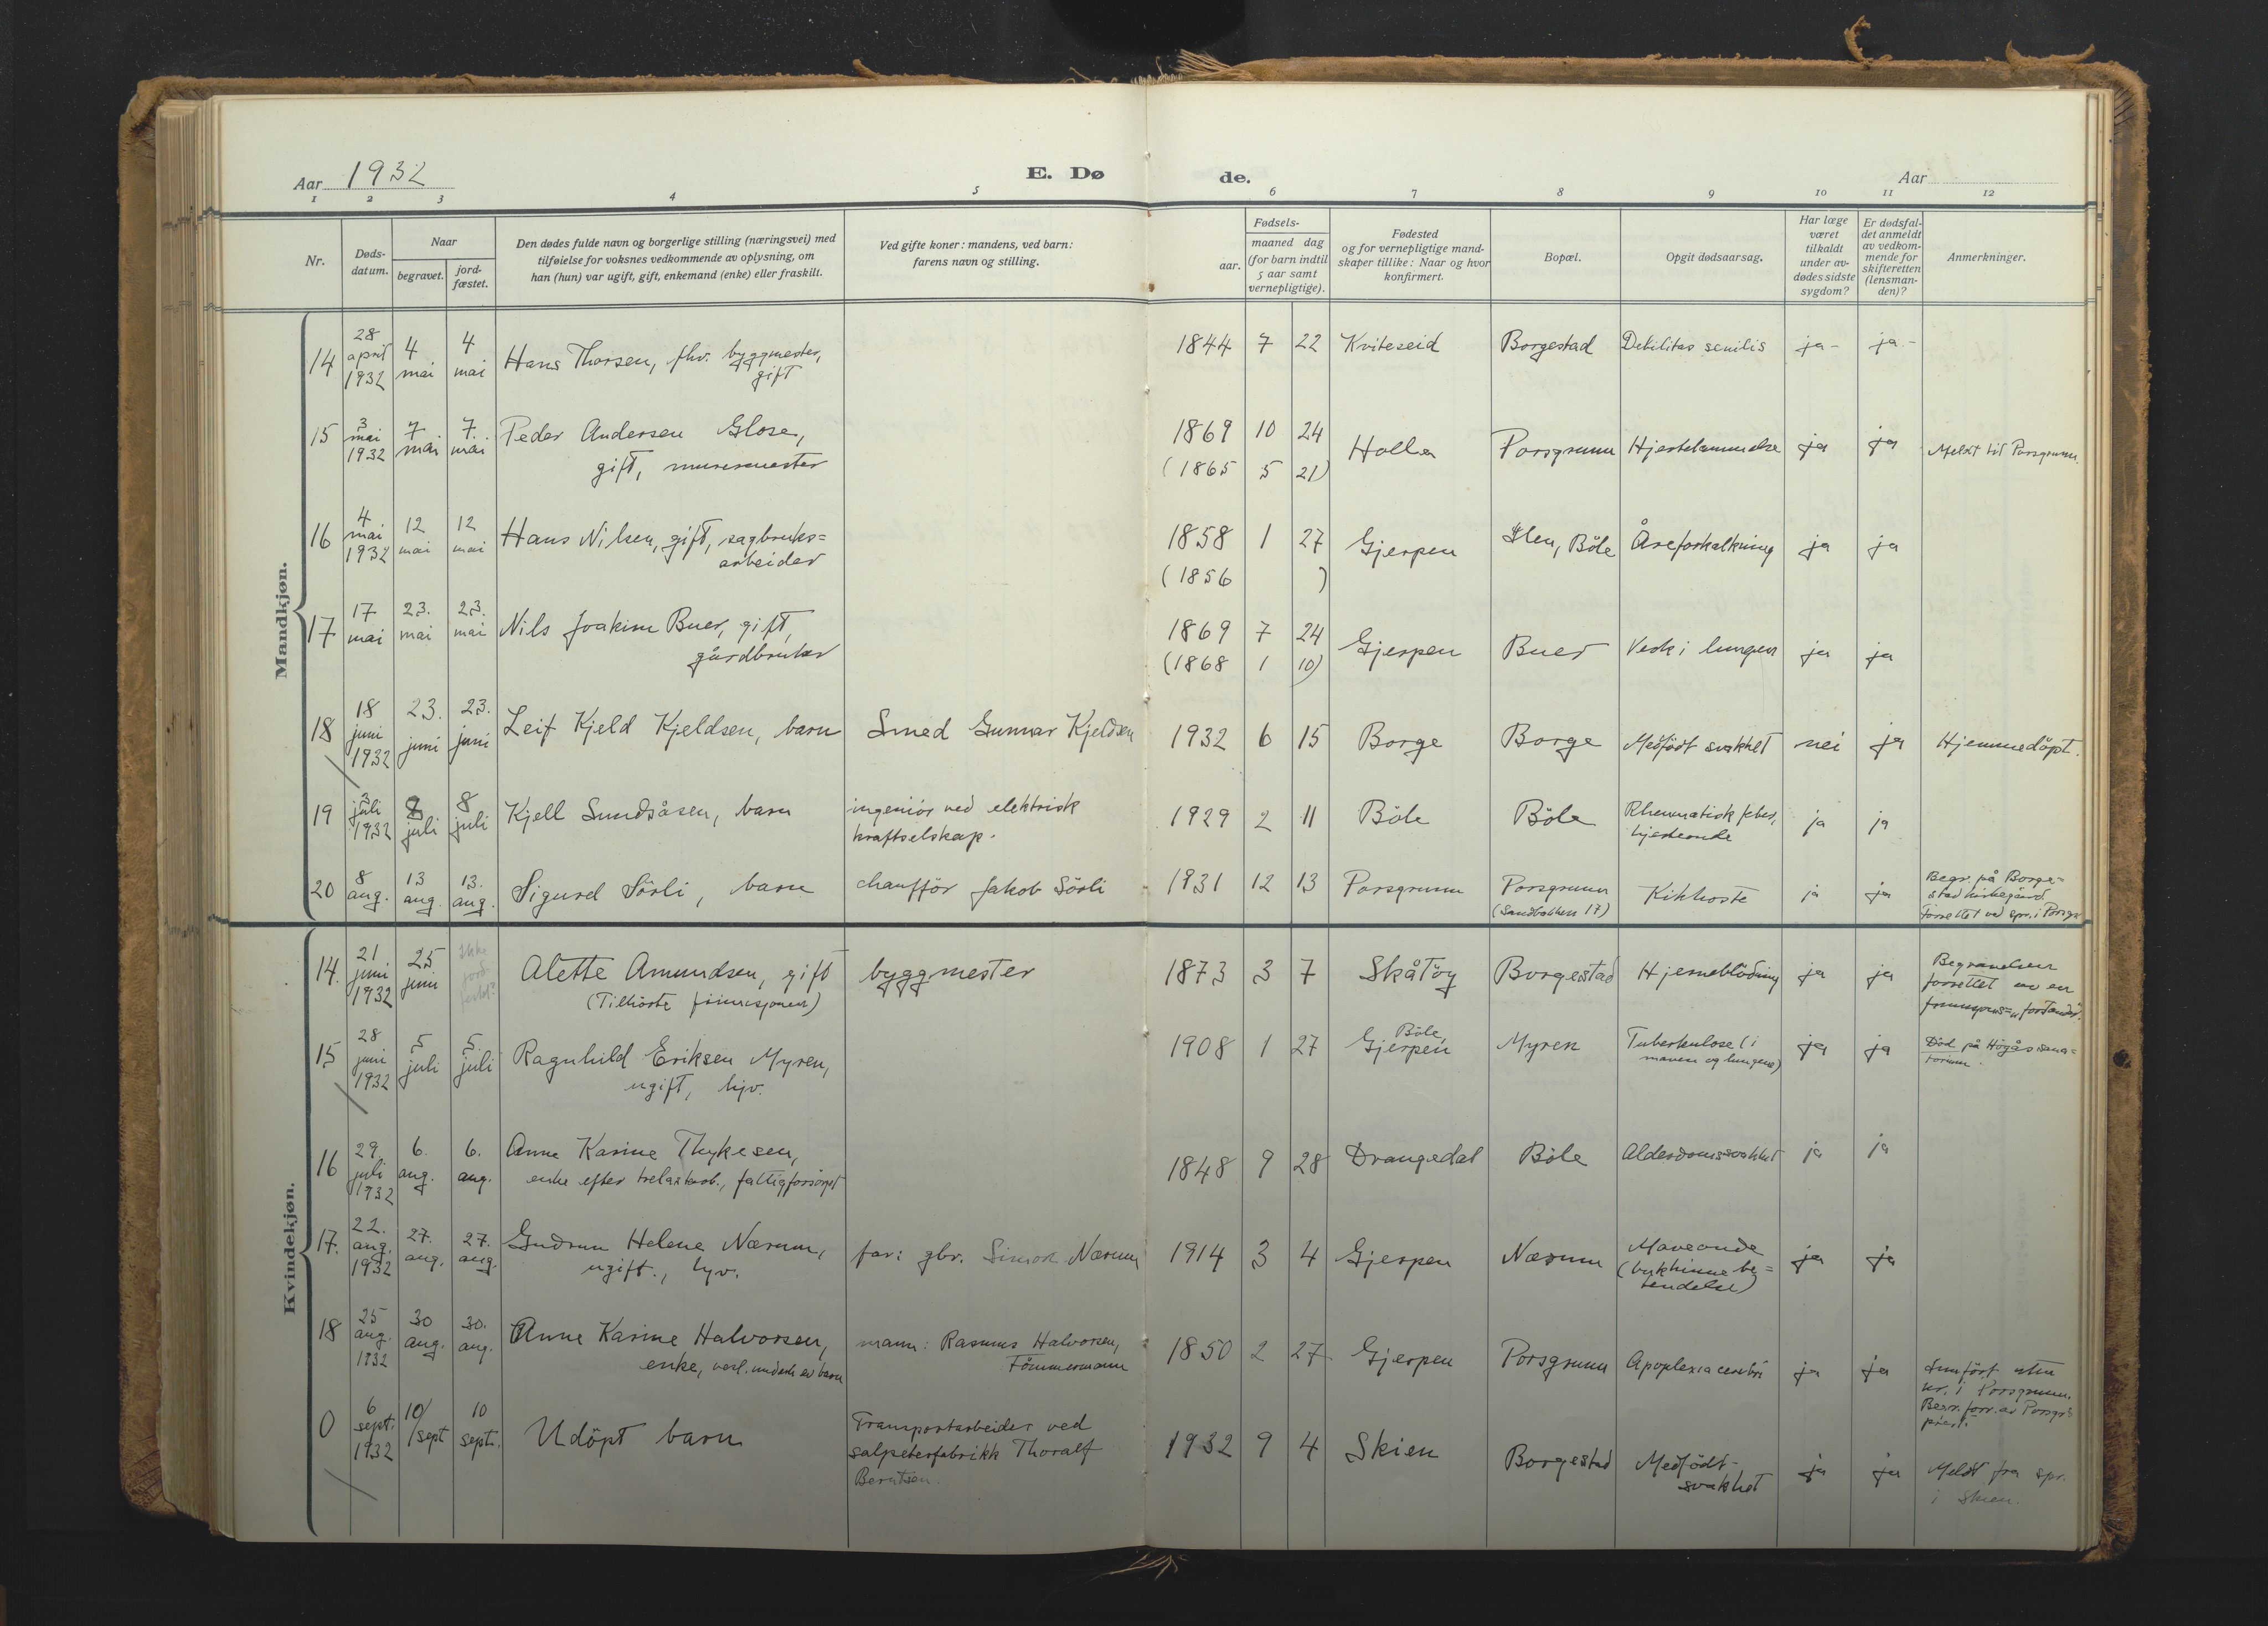 Aar 1932
E. Dø
de.
Aar
1 2 3 4 5 6 7 8 9 10 11 12
Nr.
Døds-
datum.
Naar
begravet.
jord-
fæstet.
Den dødes fulde navn og borgerlige stilling (næringsvei) med
tilføielse for voksnes vedkommende av oplysning, om
han (hun) var ugift, gift, enkemand (enke) eller fraskilt.
Ved gifte koner: mandens, ved barn:
farens navn og stilling.
Fødsels-
aar.
maaned dag
(for barn indtil
5 aar samt
vernepligtige).
Fødested
og for vernepligtige mand-
skaper tillike: Naar og hvor
konfirmert.
Bopæl.
Opgit dødsaarsag.
Har læge
været
tilkaldt
under av-
dødes sidste
sygdom?
Er dødsfal-
det anmeldt
av vedkom-
mende for
skifteretten
(lensman-
den)?
Anmerkninger.
Mandkjøn.
14
28
april
1932
4
mai
4
mai
Hans Thorsen, fhv. byggmester,
gift
1844 7 22 Kviteseid Borgestad Debilitas senilis ja - ja -
15
3
mai
1932
7
mai
7.
mai
Peder Andersen Glose,
gift, murermester
1869 10 24
(1865 5 21)
Holla Porsgrunn Hjertelammelse ja ja Meldt til Porsgrunn.
16
4
mai
1932
12
mai
12
mai
Hans Nilsen, gift, sagbruks=
arbeider
1858 1 27
(1856 )
Gjerpen Ilen, Böle Åreforkalkning ja ja
17
17
mai
23.
mai
23.
mai
Nils Joakim Buer, gift,
gårdbruker
1869 7 24
(1868 1 10)
Gjerpen Buer Verk i lungen ja ja
18
18
juni
1932
23.
juni
23.
juni
Leif Kjeld Kjeldsen, barn
Smed Gunnar Kjeldsen
1932 6 15 Borge Borge Medfödt svakhet nei ja Hjemmedöpt.
19
3
juli
1932
8
juli
8
juli
Kjell Sundsåsen, barn
ingeniör ved elektrisk
kraftselskap.
1929 2 11 Böle Böle
Rheumatisk feber,
hjerteonde
ja ja
20
8
aug.
13
aug.
13.
aug.
Sigurd Sörli, barn
chaufför Jakob Sörli
1931 12 13 Porsgrunn
Porsgrunn
(Sandbakken 17)
Kikhoste ja ja
Begr. på Borge=
stad kirkegård.
Forrettet ved spr. i Porsgr.
Kvindekjøn.
14.
21
juni
1932
25
juni
Ikke
jord-
festet
Alette Amundsen, gift
(Tilhörte frimisjonen)
byggmester
1873 3 7 Skåtöy Borgestad Hjerneblödning ja ja
Begravelsen
forrettet av en
frimisjons= forstander.
15
28
juni
1932
5
juli
5.
juli
Ragnhild Eriksen Myren,
ugift, hjv.
1908 1 27
Böle,
Gjerpen
Myren
Tuberkulose (i
maven og lungene)
ja ja
Död på Högås sana=
torium.
16
29.
juli
1932
6.
aug.
6.
aug.
Anne Karine Thykesen,
enke efter trelastarb., fattigforsörget
1848 9 28 Drangedal Böle Alderdomssvakhet ja ja
17.
22.
aug.
1932
27.
aug.
27.
aug.
Gudrun Helene Nærum,
ugift., hjv.
far: gbr. Simon Nærum
1914 3 4 Gjerpen Nærum
Maveonde
(bukhinne be=
tendelse)
ja ja
18
25
aug.
1932
30
aug.
30.
aug.
Anne Karine Halvorsen,
enke, underh. av barn
mann: Rasmus Halvorsen,
Tömmermann
1850 2 27 Gjerpen Porsgrunn Apoplexia cerebri ja ja
Innfört uten
nr. i Porsgrunn.
Begr. forr. av Porsgr.s
prest.
0
6
sept.
1932
10/
sept
10
sept.
Udöpt barn
Transportarbeider ved
salpeterfabrikk Thoralf
Berntsen.
1932 9 4 Skien Borgestad
Medfödt-
svakhet
ja ja
Meldt fra spr.
i Skien.